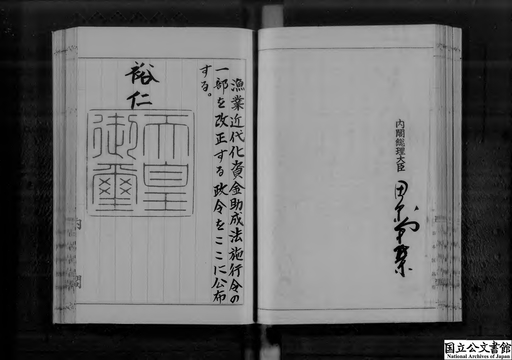 漁業近代化資金助成法施行令の
一部を改正する政令をここに公布
する。
裕仁
天皇
御璽
内閣
内閣総理大臣
田中角榮
国立公文書館
National Archives of Japan